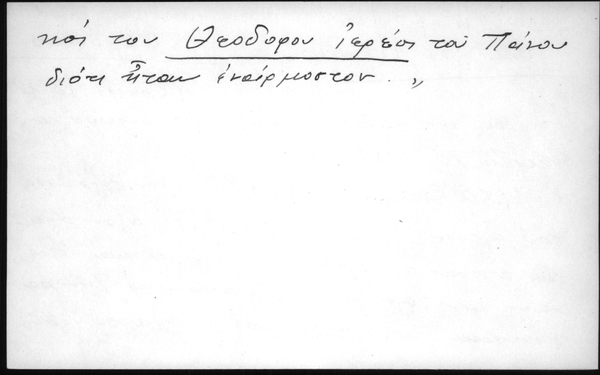 καί του Θεοδορου ἱερέος τοῦ Πάνου
διότι ἦταν ἐναίρμοστον. „